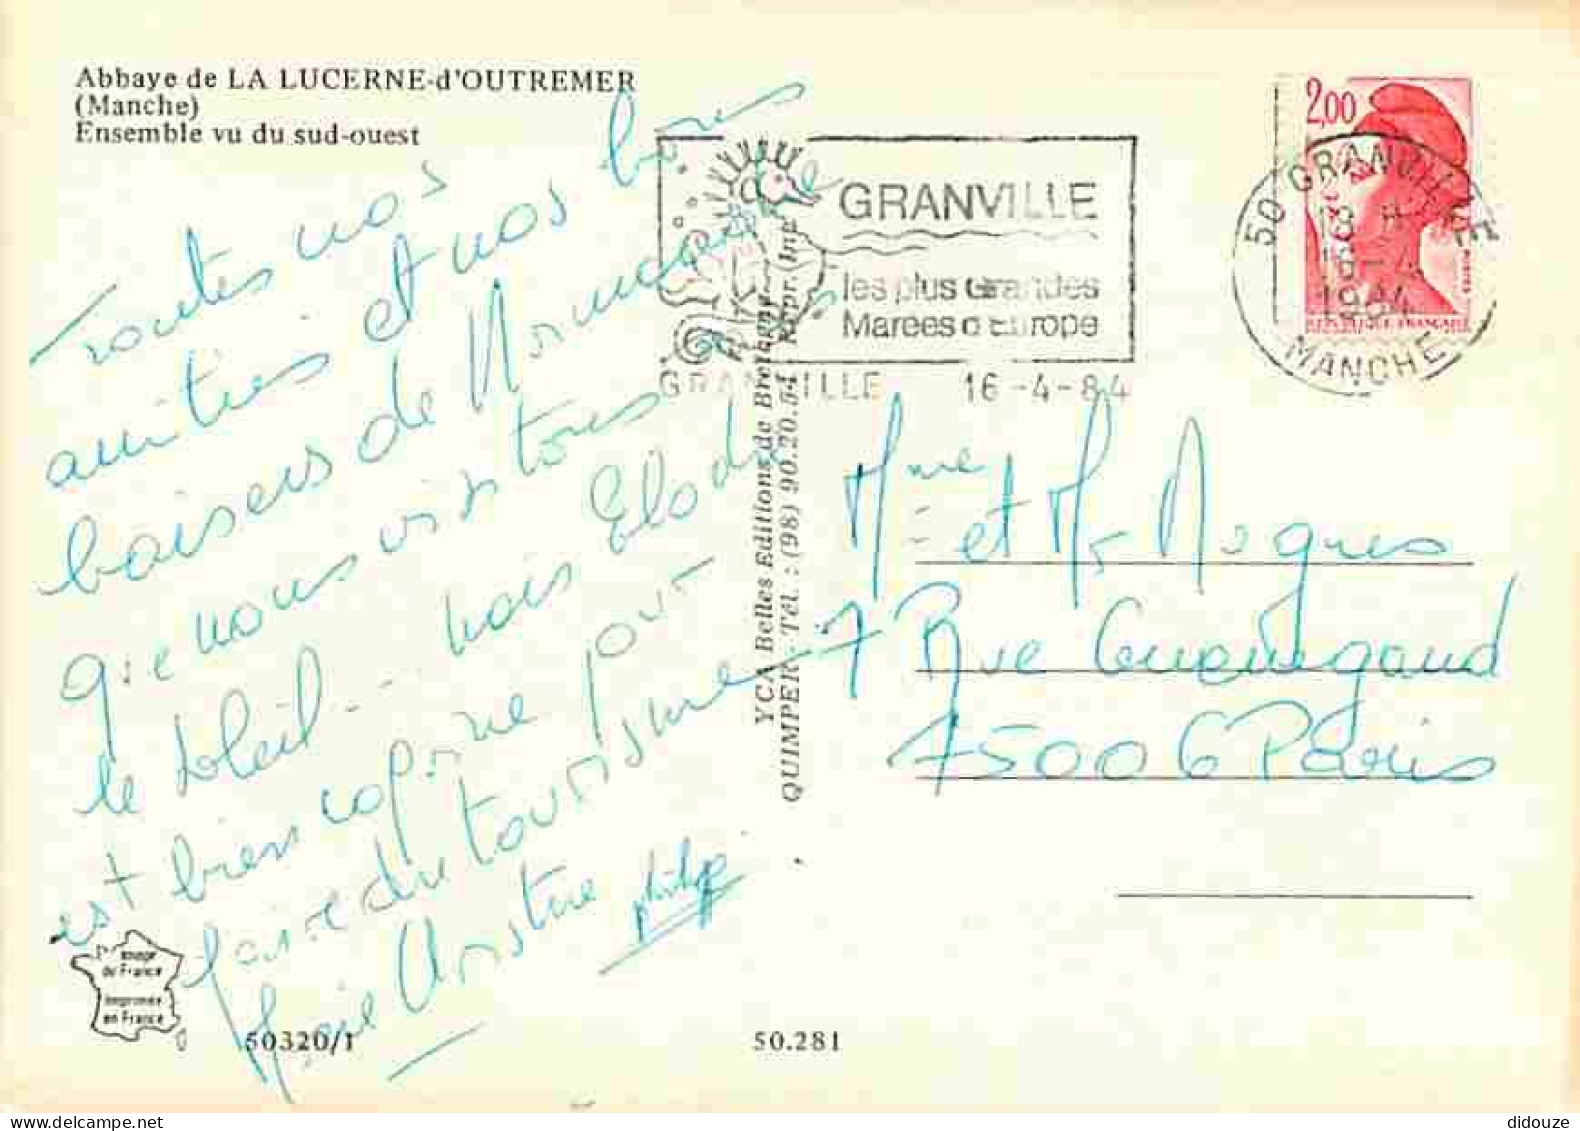 Abbaye de LA LUCERNE-d'OUTREMER
(Manche)
Ensemble vu du sud-ouest
Toutes nos
amitiés et nos bons
baisers de Normandie
que nous visitons
le soleil - mais Elodie
est bien copine pour
faire du tourisme
Marie Christine philippe
GRANVILLE
les plus Grandes
Marées d'Europe
GRANVILLE 16-4-84
2,00
50 GRANVILLE
18 H
16-4
1984
MANCHE
RÉPUBLIQUE FRANÇAISE
Mme et Mr Nogues
7 Rue Guénégaud
75006 Paris
YCA Belles Editions de Bretagne
QUIMPER - Tél. : (98) 90.20.54 Repr. Int
Image
de France
Imprimée
en France
50320/1
50.281
didouze